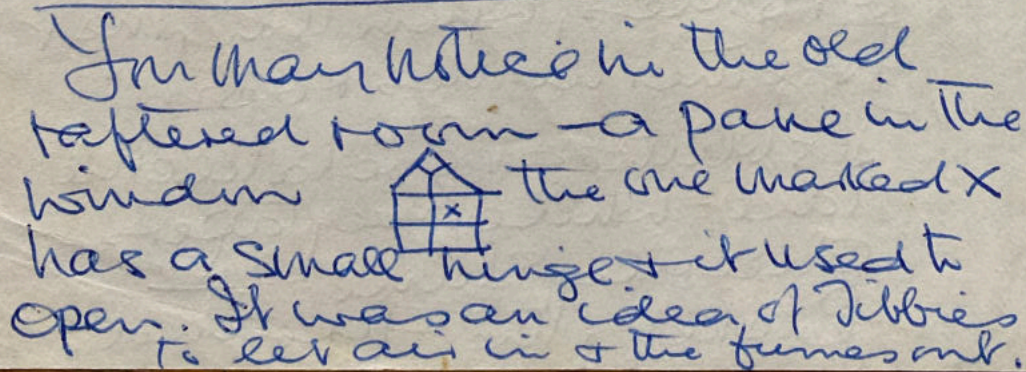 You may notice in the old
raftered room — a pane in the
window the one marked X
x
has a small hinge & it used to
open. It was an idea of Tibbies
to let air in & the fumes out.